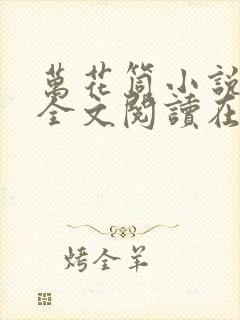 萬花筒小說
全文閱讀在
烤全羊